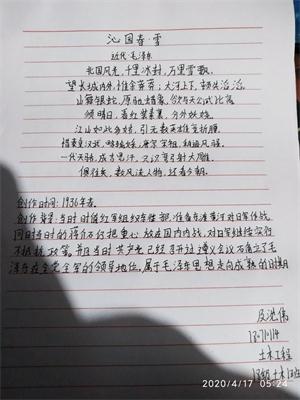 沁园春·雪
近代·毛泽东
北国风光，千里冰封，万里雪飘。
望长城内外，惟余莽莽；大河上下，顿失滔滔。
山舞银蛇，原驰蜡象，欲与天公试比高。
须晴日，看红装素裹，分外妖娆。
江山如此多娇，引无数英雄竞折腰。
惜秦皇汉武，略输文采；唐宗宋祖，稍逊风骚。
一代天骄，成吉思汗，只识弯弓射大雕。
俱往矣，数风流人物，还看今朝。
创作时间：1936年春。
创作背景：当时
准备东渡黄河对日军作战
同时当时的蒋介石把重心放在国内内战，对日军继续实行
不抵抗政策。并且当时共产党已经召开过遵义会议，确立了毛
泽东在全党全军的领导地位。属于毛泽东思想走向成熟的时期
土木工程
2020/4/17 05:24